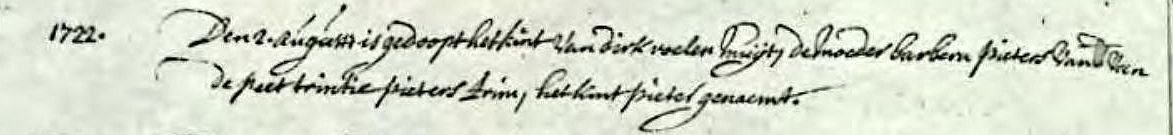 1722. Den 2. augusti is gedoopt het kint van dirk roelen muijt, de moeder barbera pieters van
de peet trintie pieters, het kint pieter genaemt.